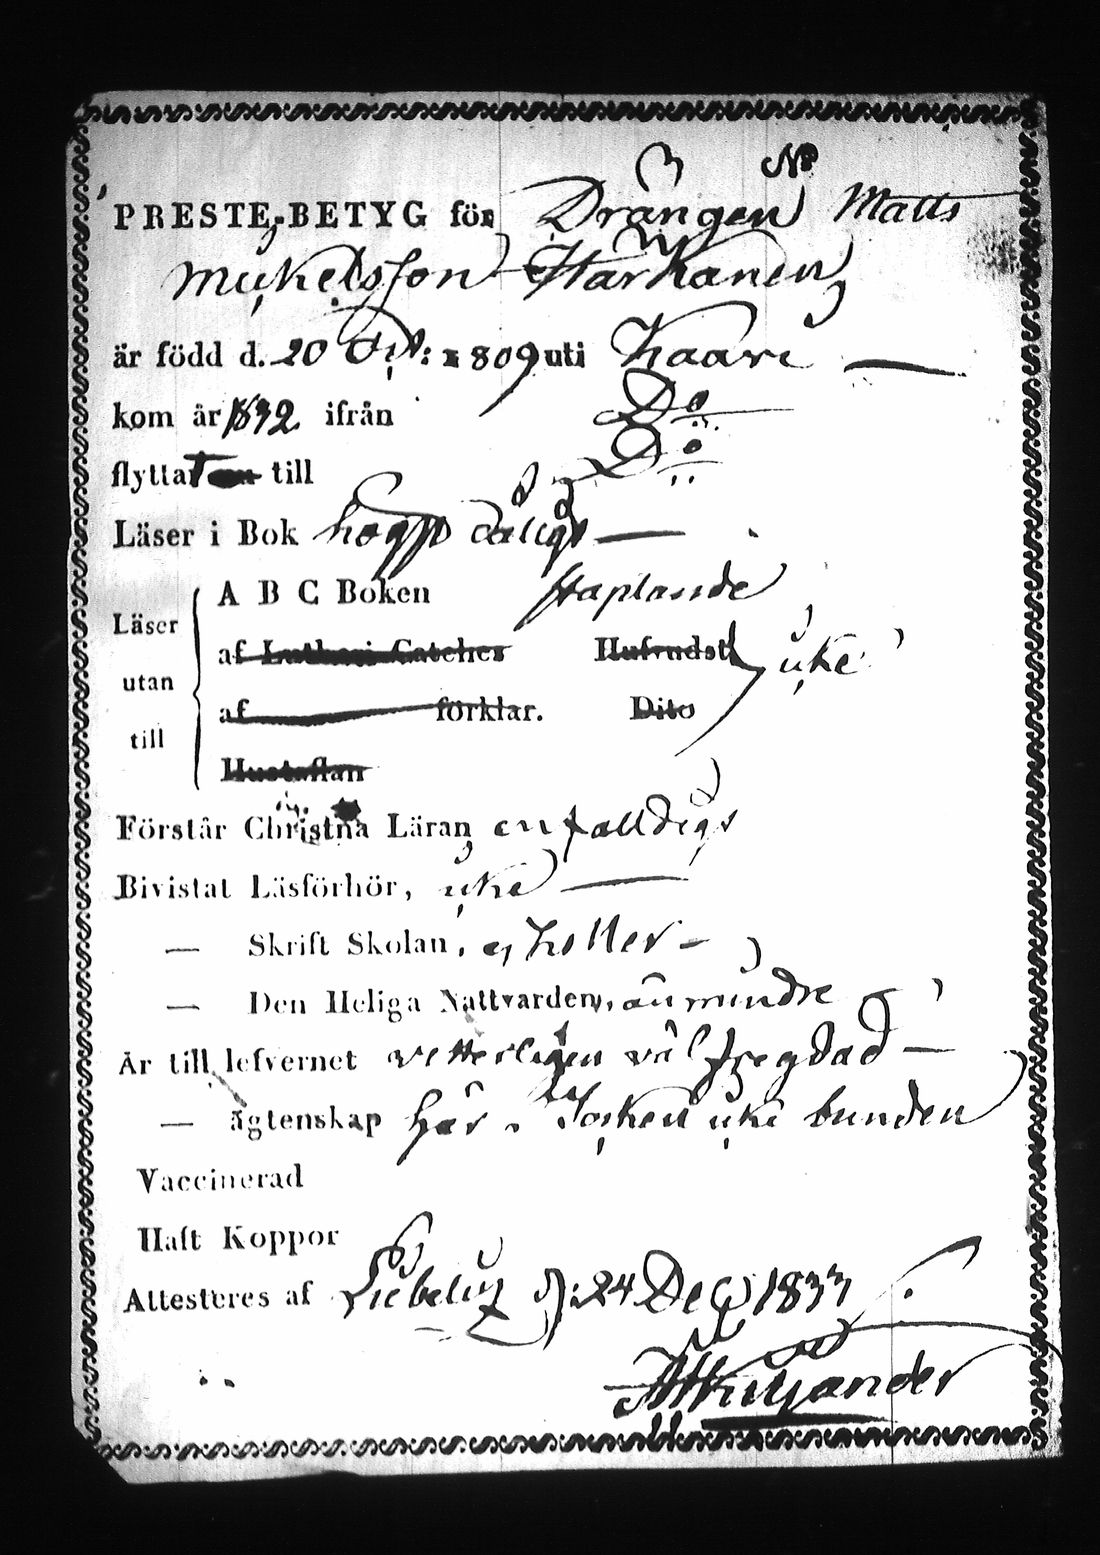 No
PRESTE-BETYG för Drängen Matts
Mickelsson Härkänen
är född d. 20 1809 uti Kaavi
kom år 1832 ifrån Do
flyttat till Do
Läser i Bok högst dåligt
A B C Boken staplande
Läser utan till
af Lutheri Cateches Hufvudst. icke
af förklar. Dito
Hustaflan
Förstår Christna Läran enfalldigt
Bivistat Läsförhör, icke
— Skrift Skolan, ej heller
— Den Heliga Nattvarden, än mindre
Är till lefvernet vetterligen väl fregdad
— ägtenskap här i Socken icke bunden
Vaccinerad
Haft Koppor
Attesteres af Libelitz d: 24 Dec 1833